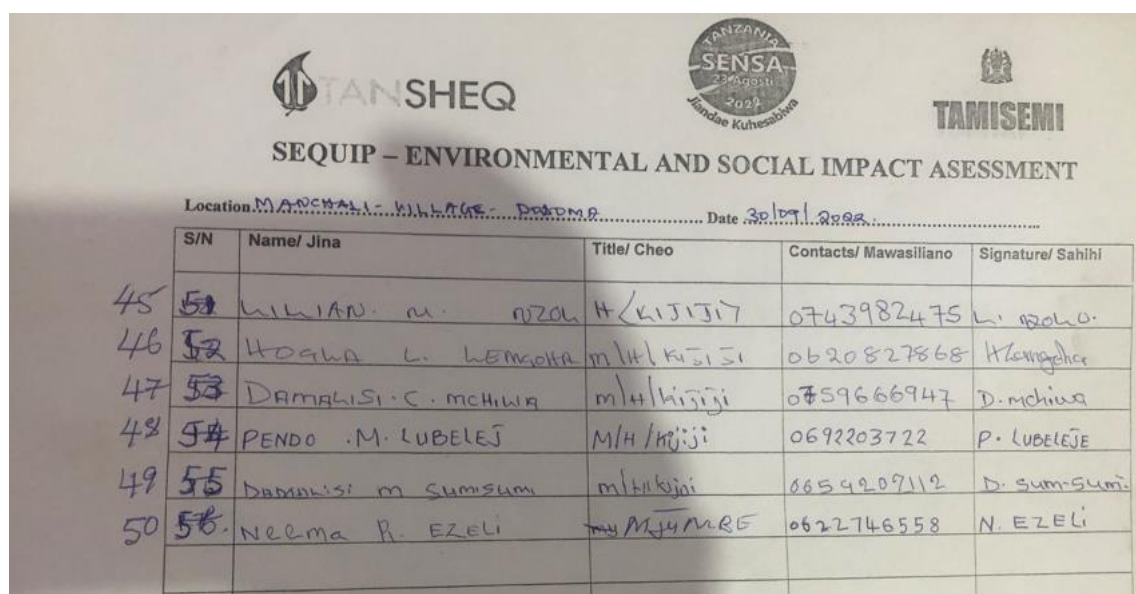 TANSHEQ
TANZANIA
SENSA
23 Agosti
2022
Jiandae Kuhesabiwa
TAMISEMI
SEQUIP – ENVIRONMENTAL AND SOCIAL IMPACT ASESSMENT
Location MANCHALI - VILLAGE - DODOMA Date 30/09/2022.
S/N Name/ Jina Title/ Cheo Contacts/ Mawasiliano Signature/ Sahihi
45 51 LILIAN. M. NZOLI H/KIJIJI 0743982475 L. NZOLO.
46 52 HOGLA L. LEMGOHA M/H/Kijiji 0620827868
47 53 DAMALISI. C. MCHIWA M/H/kijiji 0759666947 D. mchiwa
48 54 PENDO .M. LUBELEJ M/H/Kijiji 0692203722 P. LUBELEJE
49 55 DAMALISI M SUMISUMI 0659209112 D. Sum-Sumi
50 56. Neema R. EZELi MJUMBE 0622746558 N. EZELi